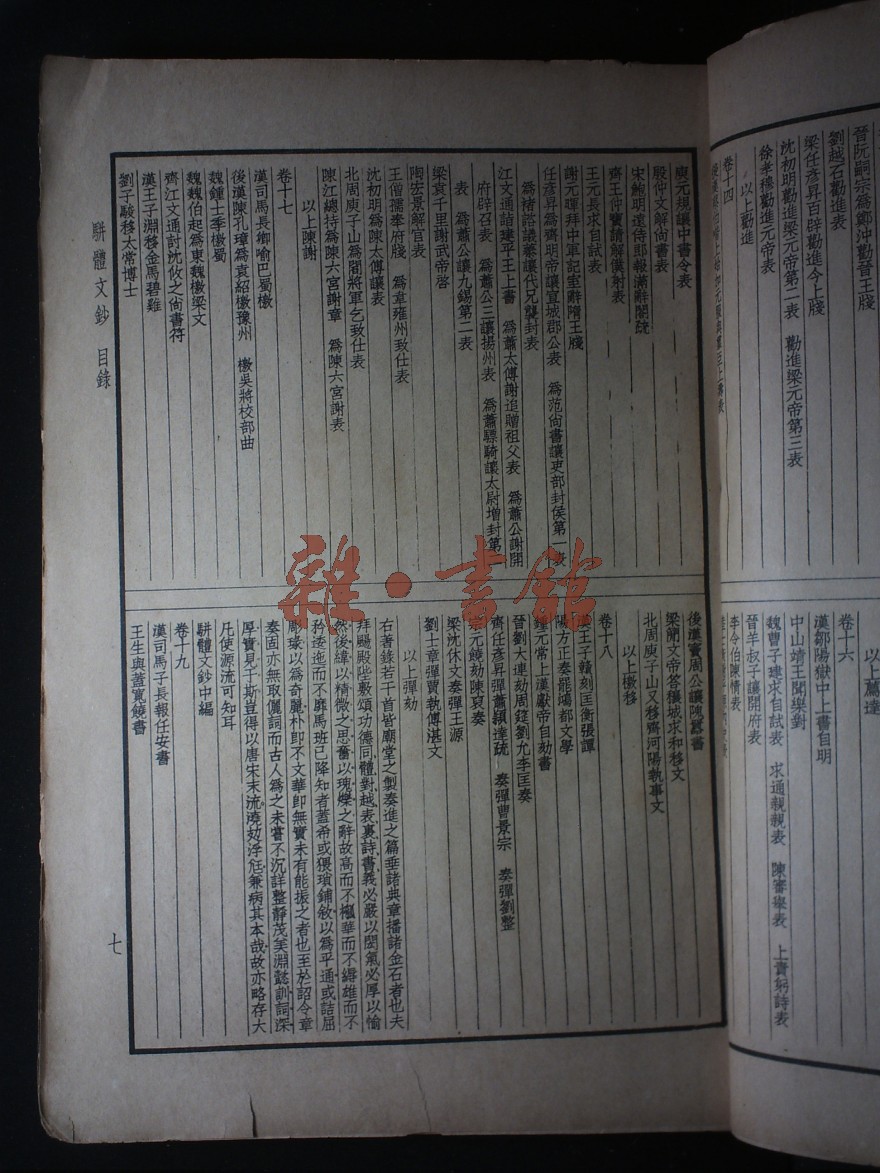 晉阮嗣宗爲鄭沖勸晉王牋
劉越石勸進表
梁任彥昇百辟勸進今上牋
沈初明勸進梁元帝第二表 勸進梁元帝第三表
徐孝穆勸進元帝表
以上勸進
卷十四
以上薦達
卷十六
漢鄒陽獄中上書自明
中山靖王聞樂對
魏曹子建求自試表 求通親親表 陳審舉表 上責躬詩表
晉羊叔子讓開府表
李令伯陳情表
庾元規讓中書令表
殷仲文解尙書表
宋鮑明遠侍郎報滿辭閤疏
齊王仲寶請解僕射表
王元長求自試表
謝元暉拜中軍記室辭隋王牋
任彥昇爲齊明帝讓宣城郡公表 爲范尙書讓吏部封侯第一表
爲褚諮議蓁讓代兄襲封表
江文通詣建平王上書 爲蕭太傅謝追贈祖父表 爲蕭公謝開
府辟召表 爲蕭公三讓揚州表 爲蕭驃騎讓太尉增封第二
表 爲蕭公讓九錫第二表
梁袁千里謝武帝啓
陶宏景解官表
王僧孺奉府牋 爲韋雍州致仕表
沈初明爲陳太傅讓表
北周庾子山爲閻將軍乞致仕表
陳江總持爲陳六宮謝章 爲陳六宮謝表
以上陳謝
卷十七
漢司馬長卿喻巴蜀檄
後漢陳孔璋爲袁紹檄豫州 檄吳將校部曲
魏鍾士季檄蜀
魏魏伯起爲東魏檄梁文
齊江文通討沈攸之尙書符
漢王子淵移金馬碧雞
劉子駿移太常博士
後漢竇周公讓隗囂書
梁簡文帝答穰城求和移文
北周庾子山又移齊河陽執事文
以上檄移
卷十八
漢王子贛劾匡衡張譚
陽方正奏罷陽都文學
鍾元常上漢獻帝自劾書
晉劉大連劾周筵劉允李匡奏
齊任彥昇彈蕭穎達疏 奏彈曹景宗 奏彈劉整
梁沈休文奏彈王源
劉士章彈賈執傅湛文
以上彈劾
右著錄若干首皆廟堂之製奏進之篇垂諸典章播諸金石者也夫
拜颺殿陛敷頌功德同體對越表裏詩書義必嚴以閎氣必厚以愉
然後緯以精微之思奮以瑰爍之辭故高而不槬華而不縟雄而不
矜逶迤而不靡馬班已降知者蓋希或猥瑣鋪敘以爲平通或詰屈
彫琢以爲奇麗朴即不文華即無實未有能振之者也至於詔令章
奏固亦無取儷詞而古人爲之未嘗不沉詳整靜茂美淵懿訓詞深
厚實見于斯豈得以唐宋末流澆攰浮尪兼病其本哉故亦略存大
凡使源流可知耳
駢體文鈔中編
卷十九
漢司馬子長報任安書
王生與蓋寬饒書
駢體文鈔 目錄
七
雜·書館